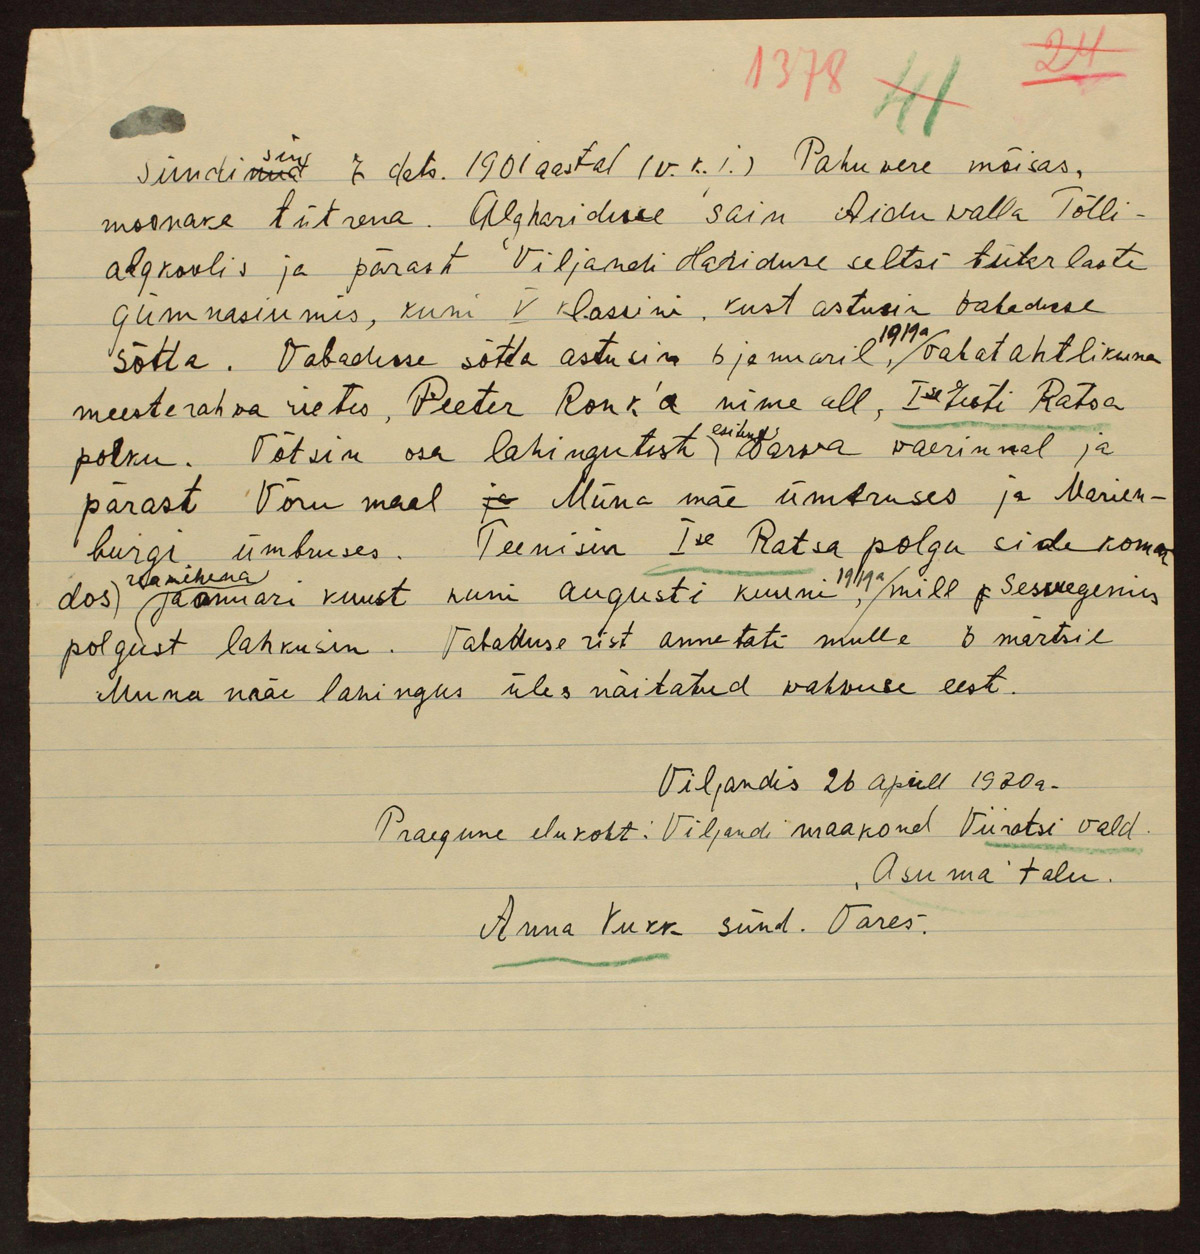 1378 41 24
Sündisin 7 dets. 1901 aastal (v. k. j.) Pahuvere mõisas,
moonaka tütrena. Alghariduse sain Aidu valla Tölli-
algkoolis ja pärast Viljandi Hariduse seltsi tütarlaste
gümnasiumis, kuni V klassini, kust astusin vabaduse
sõtta. Vabaduse sõtta astusin 6 januaril, 1919a vabatahtlikuna
meesterahva riietes, Peeter Ronk'a nime all, Ise Eesti Ratsa
polku. Võtsin osa lahingutest esiteks Narva vaerinnal ja
pärast Võru maal ja Muna mäe ümbruses ja Marien-
burgi ümbruses. Teenisin Ise Ratsa polgu side koman
dos) reamihena jaanuari kuust kuni augusti kuuni, 1919a mill Sesvegenis
polgust lahkusin. Vabaduse rist annetati mulle 6 märtsil
Muna mäe lahingus üles näitatud vahvuse eest.
Viljandis 26 aprill 1920a.
Praegune elukoht: Viljandi maakond Viiratsi vald.
"Asuma" talu.
Anna Vukk sünd. Vares.